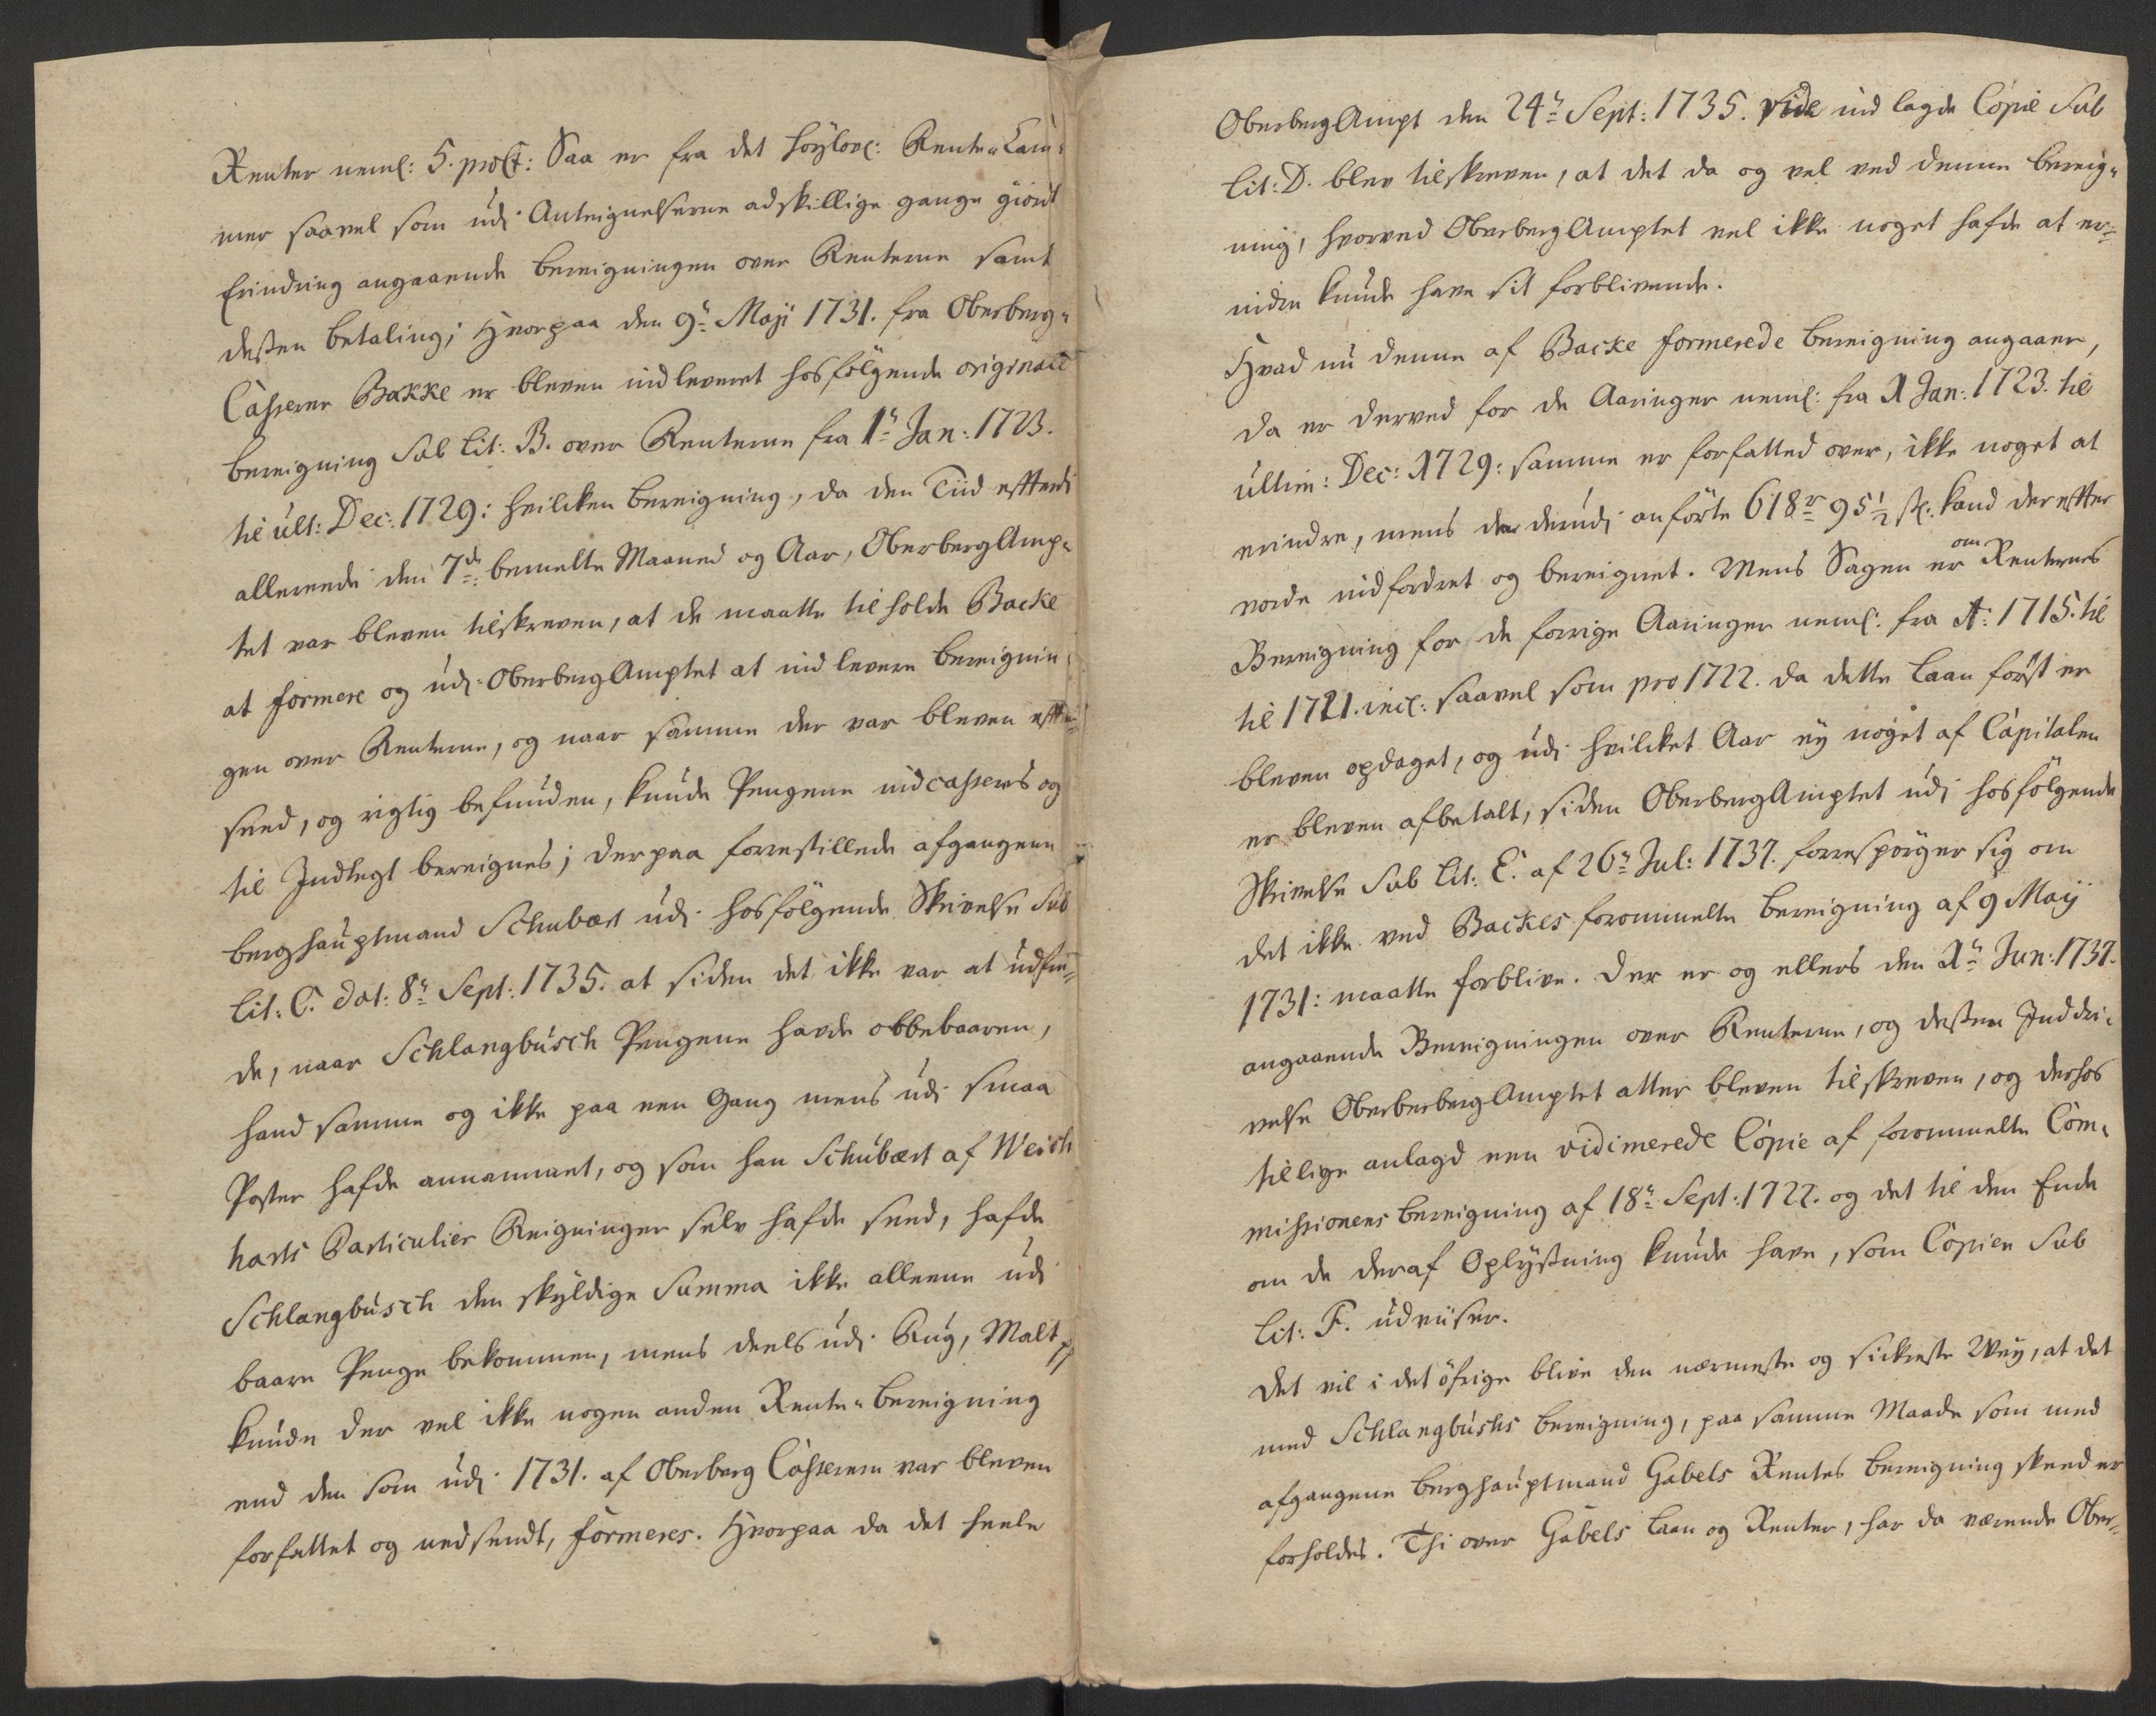 Renter neml: 5. proCt: Saa er fra det höylovl: Rente-Cam-
mer saavel som udi Anteignelserne adskillige gange giordt
Erindring angaaende bereigningen over Renterne samt
desten betaling; Hvorpaa den 9de Maji 1731. fra Oberberg-
Casserer Bakke er bleven indleveret hosfölgende original
bereigning Sub Lit: B. over Renterne fra 1te Jan: 1723.
til ult: Dec: 1729: hvilcken bereigning, da den Tiid efftterdi
allerende den 7de bemelte Maaned og Aar, OberbergAmp-
tet var bleven tilskreven, at de maatte tilholde Backe
at formere og udi OberbergAmptet at indlevere bereignin-
gen over Renterne, og naar samme der var bleven effter-
seed, og rigtig befunden, kunde Pengene indcasseres og
til Indtegt bereignes; derpaa forrestillede afgangene
berghauptmand Schubært udi hosfölgende Skrivelse Sub
Lit: C. dat: 8te Sept: 1735. at siden det ikke var at udfin-
de, naar Schlangbusch Pengene havde obbebaaren,
hand samme og ikke paa een Gang mens udi smaa
Poster hafde annammet, og som han Schubært af Weich
harts Particulier Reigninger selv hafde seed, hafde
Schlangbusch den skyldige Summa ikke alleene udi
baare Penge bekommen, mens deels udi Rug, Malt p
kunde der vel ikke nogen anden Rente-bereigning
end den som udi 1731. af Oberberg Cassereren var bleven
forfattet og nedsendt, formeres. Hvorpaa da det heele
OberbergAmpt den 24de Sept: 1735. vide indlagde Copie Sub
Lit: D. blev tilskreven, at det da og vel ved denne bereig-
ning, hvorved OberbergAmptet vel ikke noget hafde at er-
indre kunde have sit forblivende.
Hvad nu denne af Backe formerede bereigning angaaer,
da er derved for de Aaringer neml: fra 1 Jan: 1723. til
ultim: Dec: 1729: samme er forfatted over, ikke noget at
erindre, mens de derudi anförte 618 r 95 1/2 sk: kand dereffter
vorde indfordret og bereignet. Mens Sagen er om Renternes
Bereigning for de forrige Aaringer neml: fra A: 1715. til
til 1721. incl: saavel som pro 1722. da dette Laan först er
bleven opdaget, og udi hvilcket Aar ey noget af Capitalen
er bleven afbetalt, siden OberbergAmptet udi hosfölgende
Skrivelse Sub Lit: E. af 26de Jul: 1737. forrespörger sig om
det ikke ved Backes forommelte bereigning af 9 Maij
1731: maatte forblive. Der er og ellers den 1te Jun: 1737.
angaaende Bereigningen over Renterne, og desten Inddri-
velse OberberbergAmptet atter bleven tilskreven, og derhos
tillige anlagd een vidimerede Copie af forommelte Com-
missionens bereigning af 18de Sept: 1722. og det til den Ende
om de deraf Oplystning kunde have, som Copien Sub
Lit: F. udviiser.
Det vil i det öfrige blive den nærmeste og sickreste Wey, at det
med Schlangbuschs bereigning, paa samme Maade som med
afgangene berghauptmand Gabels Rentes bereigning skeed er
forholdes. Thi over Gabels Laan og Renter, har da værende Ober-